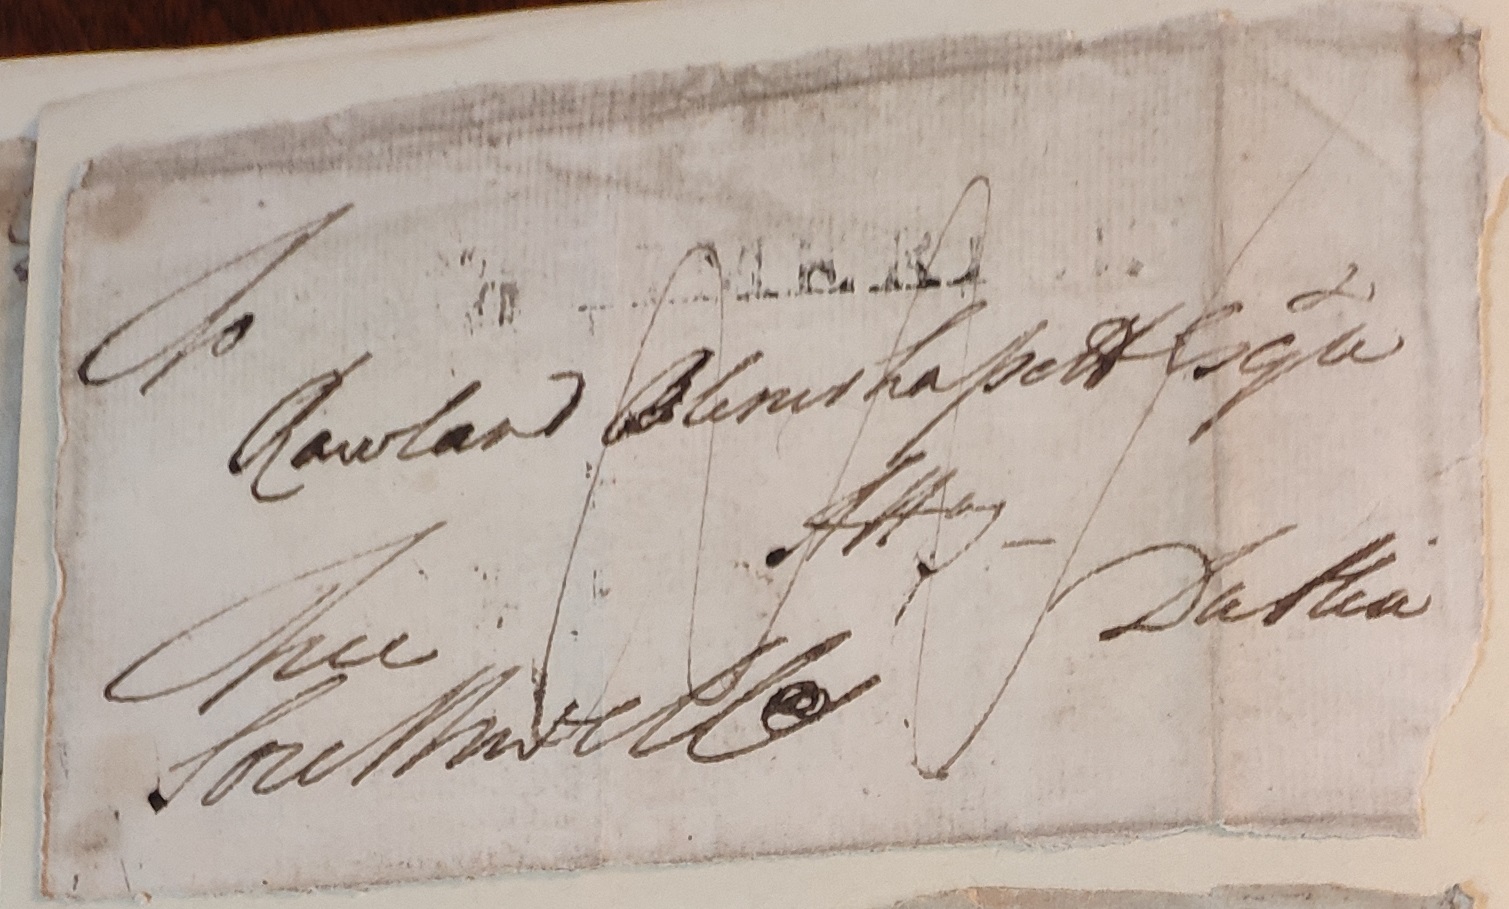 To
Rowland Blenerhassett Esqr
Atty
Dublin
Free
Southwell